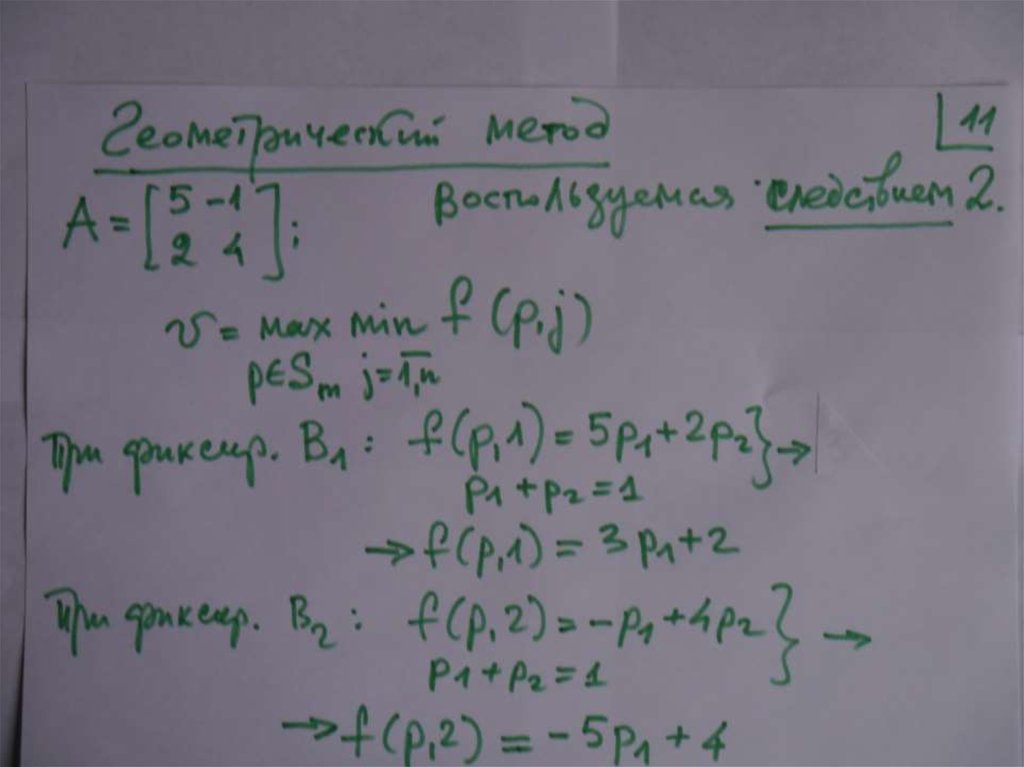 Геометрический метод
11
A = [5 -1
2 4];
воспользуемся следствием 2.
v = max min f(p,j)
p∈Sm j=1,n
При фиксир. B1: f(p,1) = 5p1+2p2} →
p1+p2=1
→ f(p,1) = 3p1+2
При фиксир. B2: f(p,2) = -p1+4p2} →
p1+p2=1
→ f(p,2) = -5p1+4